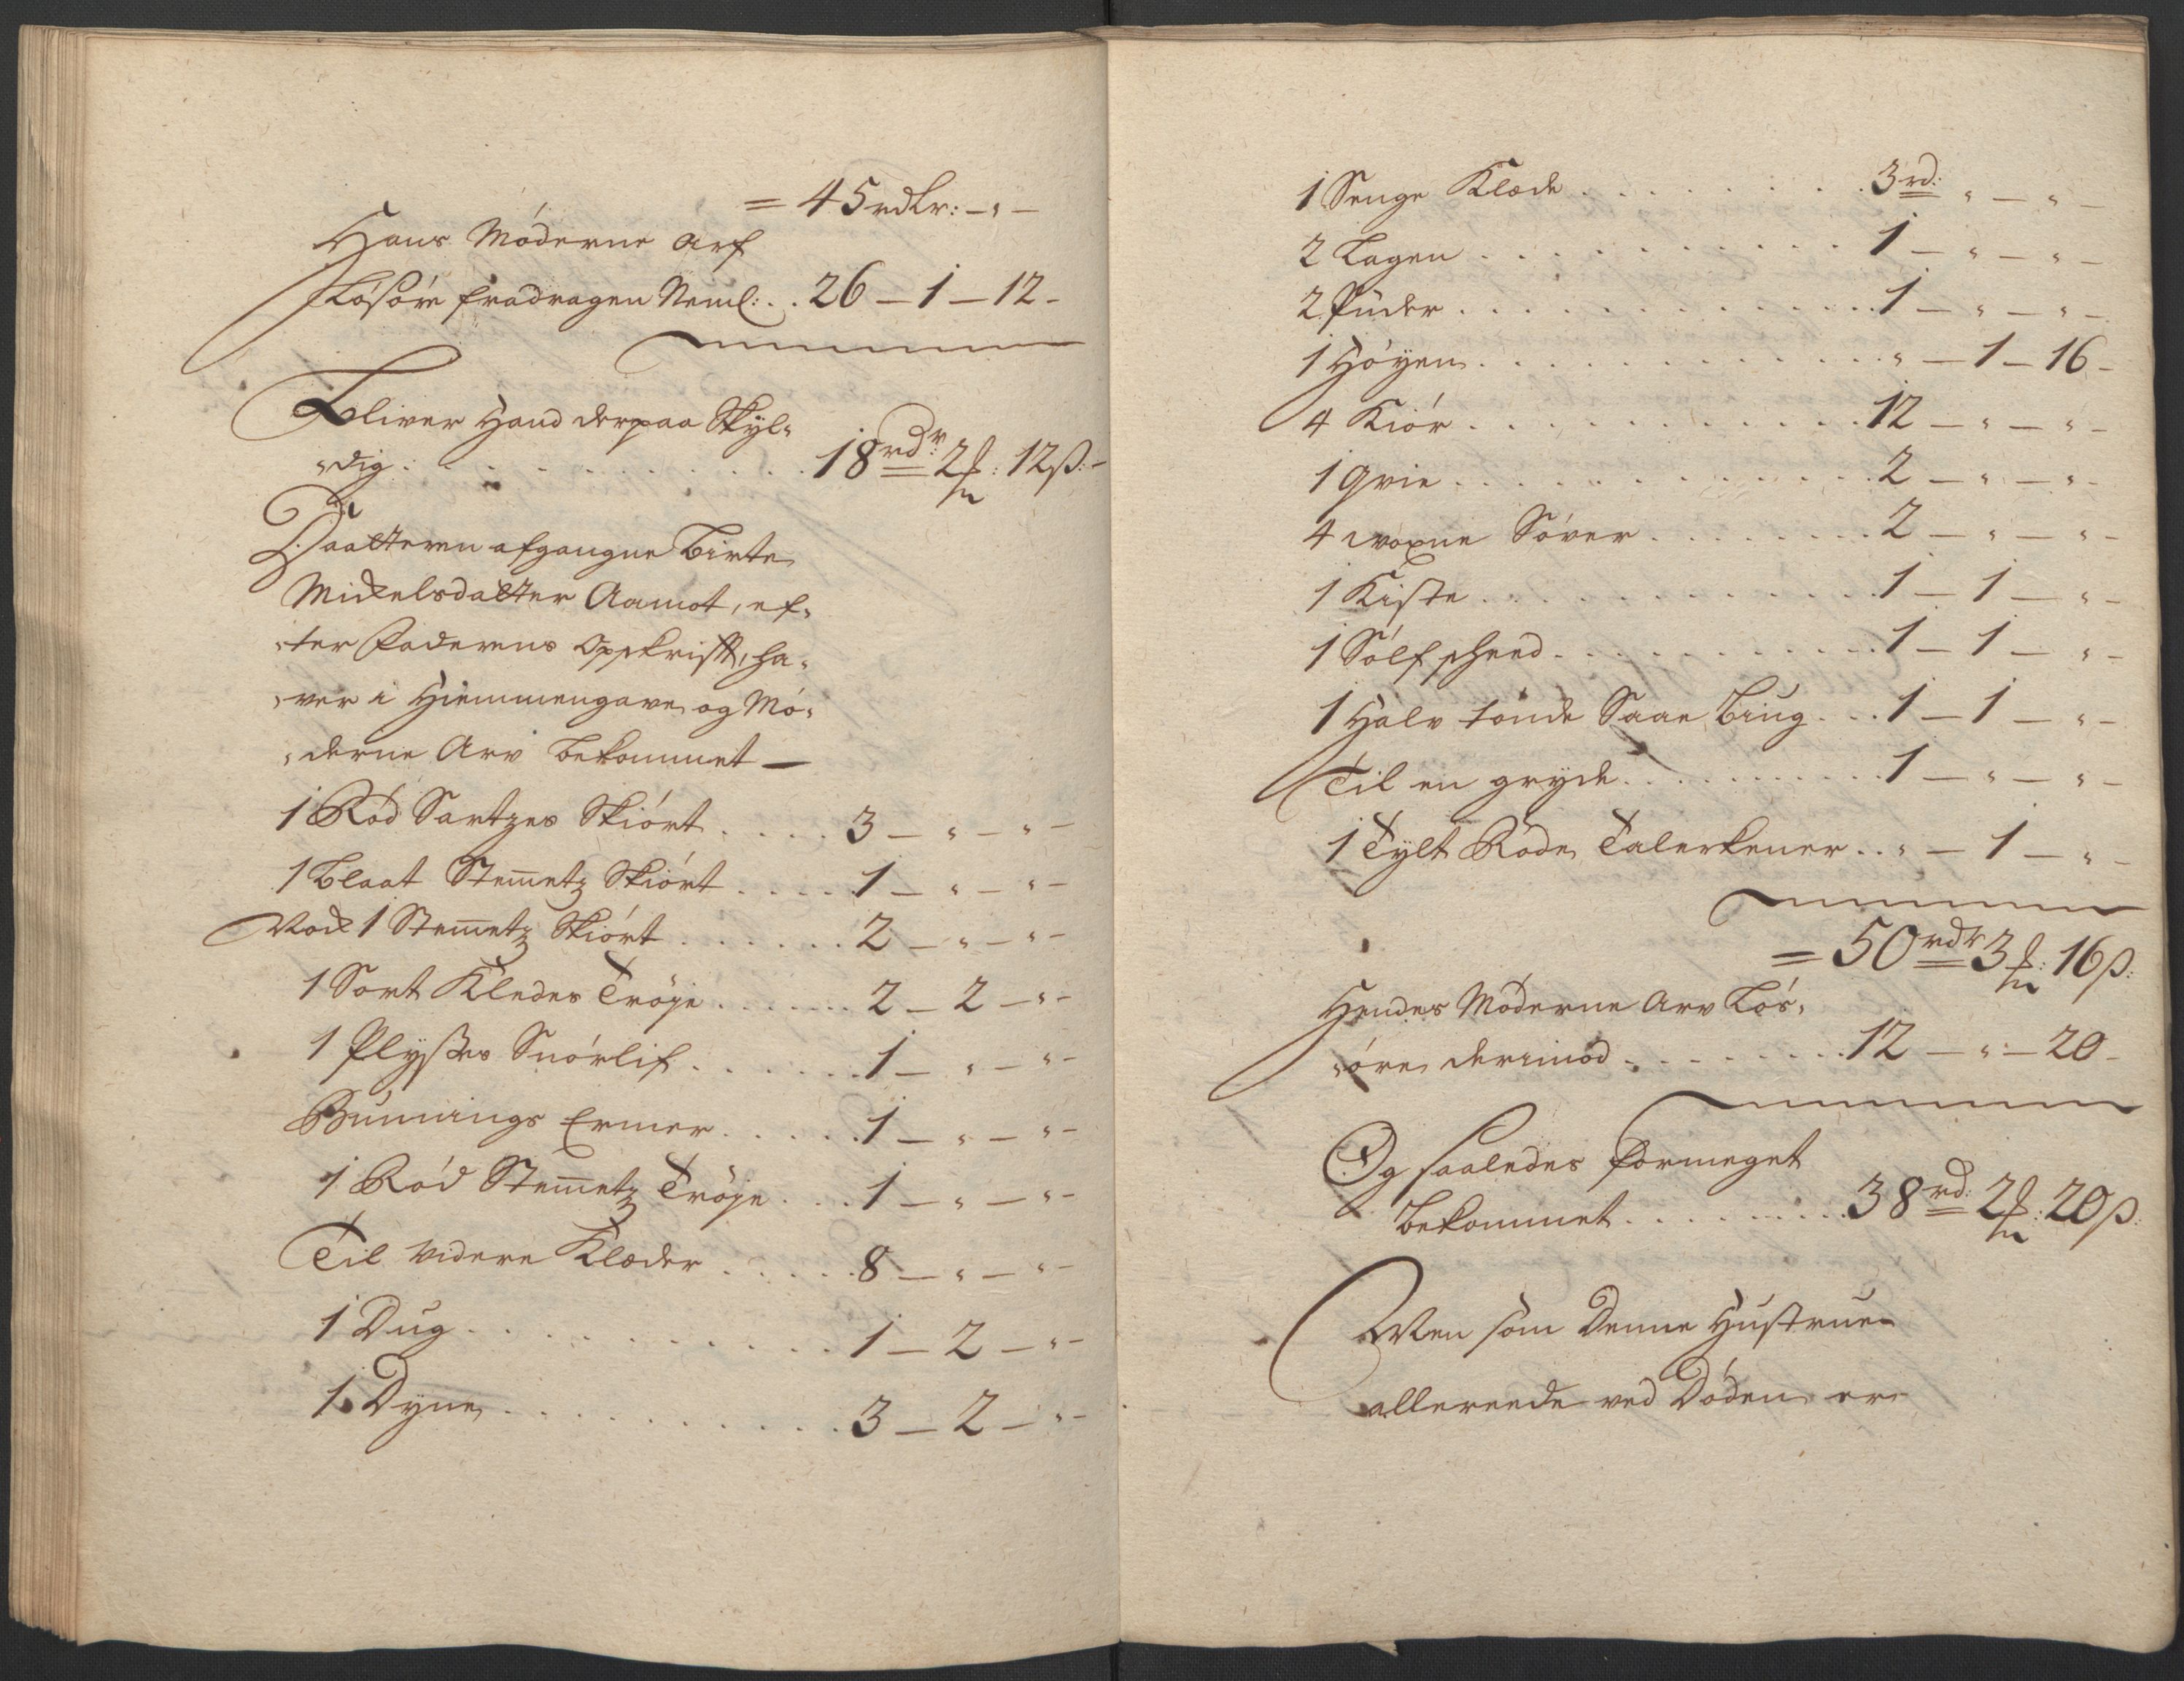 = 45 rdlr: – " –
Hans Möderne Arf
Lösöre fradragen Neml: . . 26 – 1 – 12 –
Bliver Hand derpaa Skÿl-
-dig . . . . . . . . 18 rdr: 2 f: 12 ß: –
Daatteren afgangne Birte
Mickelsdatter Aamot, ef-
-ter Faderens Opskrifft, ha-
-ver i Hiemmengave og Mö-
-derne Arv bekommet –
1 Röd Sartzes Skiört . . . . 3 – " – " –
1 Blaat Stem̄etz Skiört . . . . 1 – " – " –
Nock 1 Stem̄etz Skiört . . . . . . 2 – " – " –
1 Sort Kledes Tröje . . . . . . 2 – 2 – " –
1 Plysses Snörlif . . . . . . 1 – " – " –
Bunings Ermer . . . . . 1 – " – " –
1 Röd Stem̄etz Tröje . . . 1 – " – " –
Til videre Klæder . . . . . 8 – " – " –
1 Dug . . . . . . . . . . 1 – 2 – " –
1 Dyne . . . . . . . . . . 3 – 2 – " –
1 Senge Klæde . . . . . . . . 3 rd: " – " –
2 Lagen . . . . . . . . . . 1 – " – " –
2 Puder . . . . . . . . . . 1 – " – " –
1 Höyen . . . . . . . . . . " – 1 – 16 –
4 Kiör . . . . . . . . . . 12 – " – " –
1 Qvie . . . . . . . . . . 2 – " – " –
4 voxne Söver . . . . . . . 2 – " – " –
1 Kiste . . . . . . . . . . 1 – 1 – " –
1 Sölf skeed . . . . . . . . 1 – 1 – " –
1 Halv tönde Saae Biug . . . 1 – 1 – " –
Til en gryde . . . . . . . . 1 – " – " –
1 Tylt Röde Talerkener . . " – 1 – " –
= 50 rdr 3 f: 16 ß:
Hendes Möderne Arv Lös-
-öre derimod . . . . . . . . 12 – " – 20 –
Og saaledes formeget
bekommet . . . . . . . . 38 rd: 2 f: 20 ß:
Men som Denne Hustrue
allereede ved Döden er